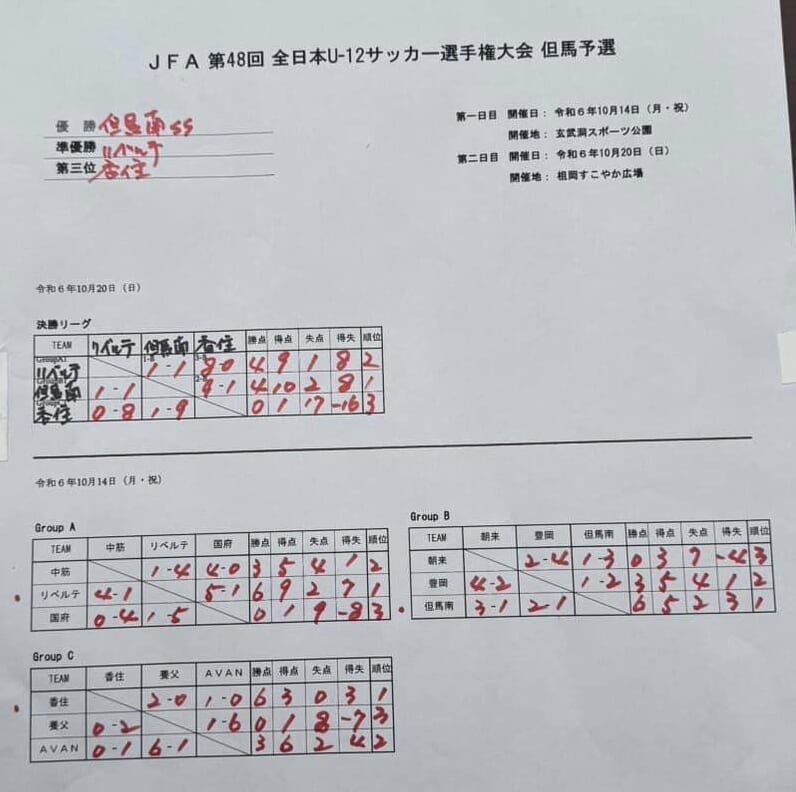 JFA 第48回 全日本U-12サッカー選手権大会 但馬予選
優 勝 但馬南SS
準優勝 リベルテ
第三位 香住
第一日目 開催日： 令和６年10月14日（月・祝）
開催地： 玄武洞スポーツ公園
第二日目 開催日： 令和６年10月20日（日）
開催地： 祖岡すこやか広場
令和６年10月20日（日）
決勝リーグ
TEAM リベルテ 但馬南 香住 勝点 得点 失点 得失 順位
リベルテ 1-1 8-0 4 9 1 8 2
但馬南 1-1 9-1 4 10 2 8 1
香住 0-8 1-9 0 1 17 -16 3
令和６年10月14日（月・祝）
Group A
TEAM 中筋 リベルテ 国府 勝点 得点 失点 得失 順位
中筋 1-4 4-0 3 5 4 1 2
リベルテ 4-1 5-1 6 9 2 7 1
国府 0-4 1-5 0 1 9 -8 3
Group B
TEAM 朝来 豊岡 但馬南 勝点 得点 失点 得失 順位
朝来 2-4 1-3 0 3 7 -4 3
豊岡 4-2 1-2 3 5 4 1 2
但馬南 3-1 2-1 6 5 2 3 1
Group C
TEAM 香住 養父 AVAN 勝点 得点 失点 得失 順位
香住 2-0 1-0 6 3 0 3 1
養父 0-2 1-6 0 1 8 -7 3
AVAN 0-1 6-1 3 6 2 4 2